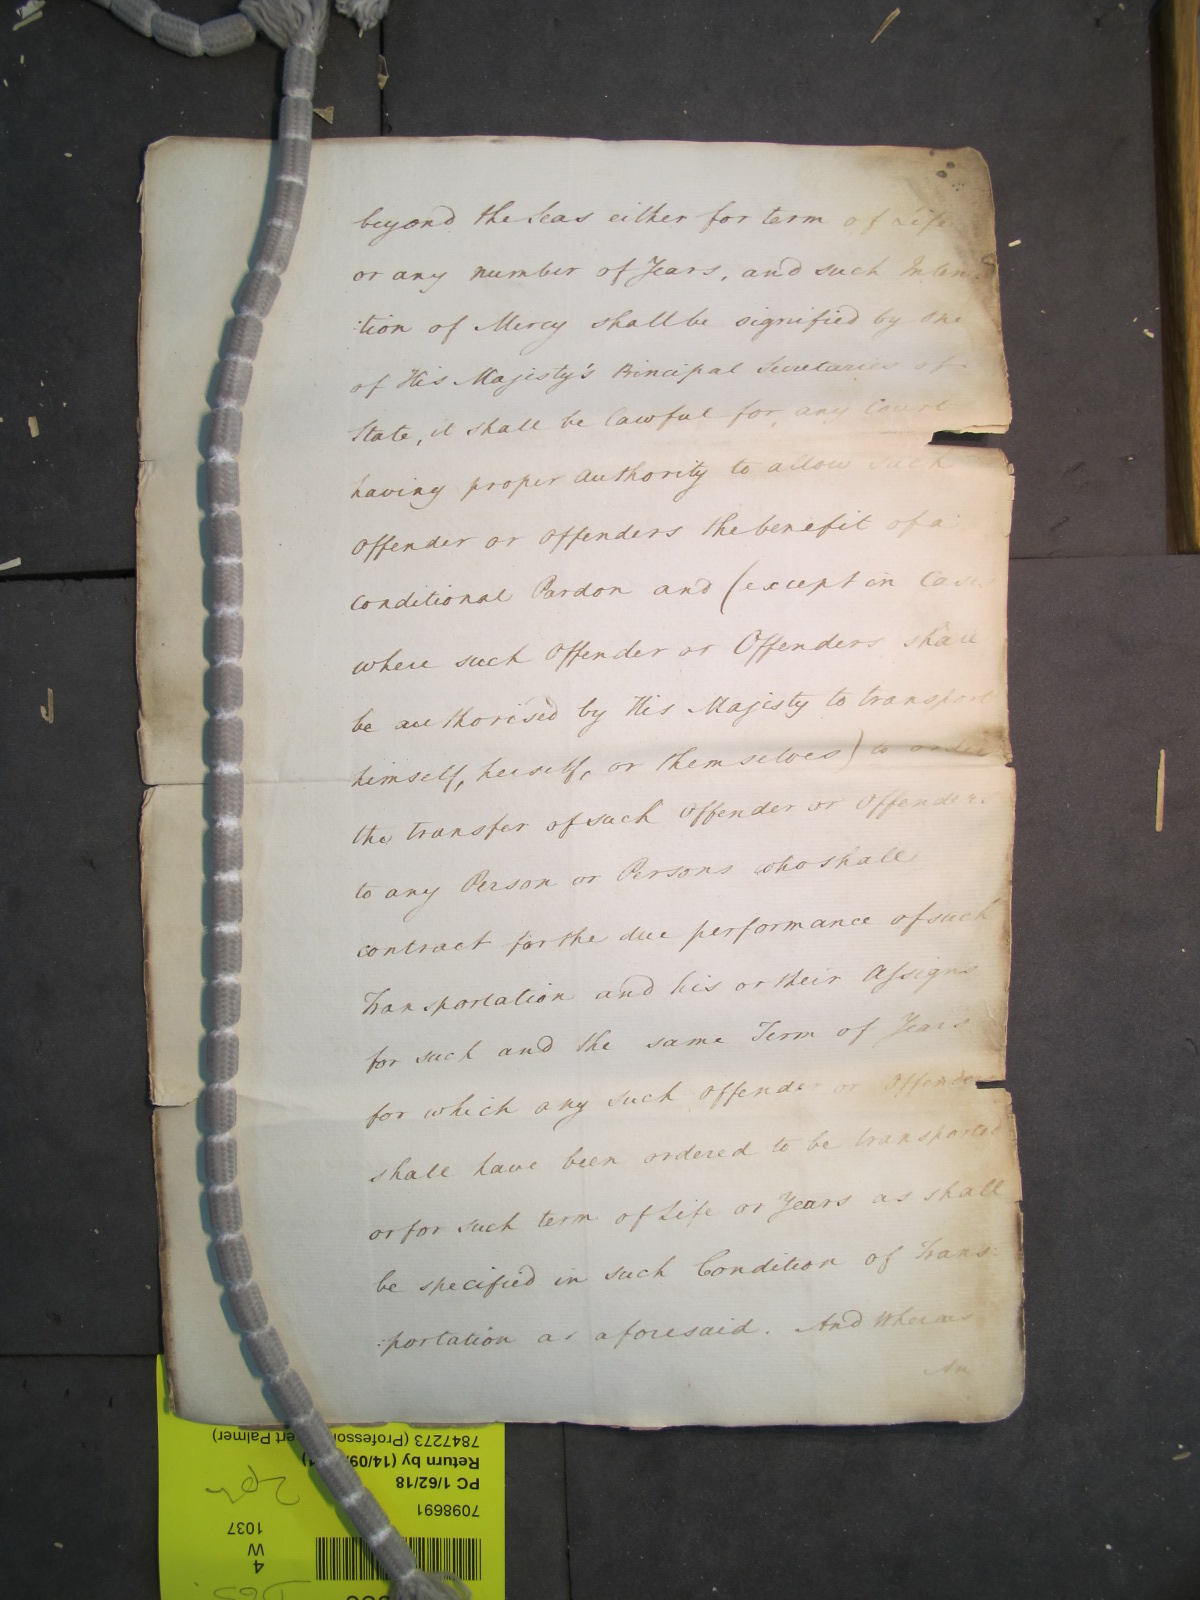 beyond the Seas either for term of Life
or any number of Years, and such Inten
:tion of Mercy shall be signified by one
of His Majesty's Principal Secretaries of
State, it shall be lawful for any Court
having proper Authority to allow such
Offender or Offenders the benefit of a
conditional Pardon and (except in Cases
where such Offender or Offenders shall
be authorised by His Majesty to transport
himself, herself, or themselves) to order
the transfer of such Offender or Offenders
to any Person or Persons who shall
contract for the due performance of such
Transportation and his or their Assigns
for such and the same Term of Years
for which any such Offender or Offenders
shall have been ordered to be transported
or for such term of Life or Years as shall
be specified in such Condition of Trans:
:portation as aforesaid. And Whereas
An
7847273 (Professor ert Palmer)
Return by (14/09/
PC 1/62/18
7098691
1037
W
4